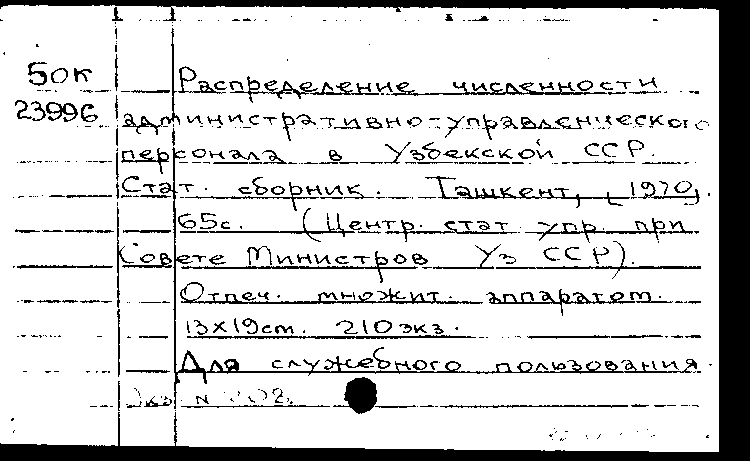 50К Распределение численности
23996 административно-управленческого
персонала в Узбекской ССР.
Стат. сборник. Ташкент, [1970].
65с. (Центр. стат упр. при
Совете Министров Уз ССР).
Отпеч. множит. аппаратом.
13х19см. 210экз.
Для служебного пользования
Экз N